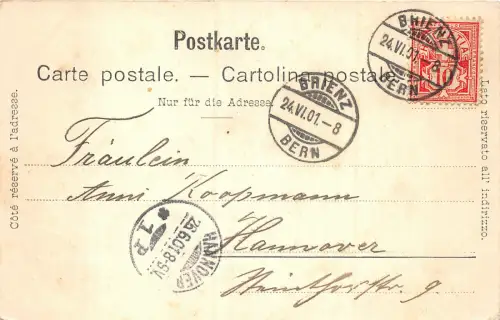 Postkarte.
Carte postale. — Cartolina postale
Nur für die Adresse.
Côté réservé à l'adresse.
Lato riservato all' indirizzo.
BRIENZ
24.VI.01-8
BERN
BRIENZ
24.VI.01-8
BERN
10
Fräulein
Anni Koopmann
Hannover
9.
HANNOVER
26.6.01.8-9V.
* 1 P